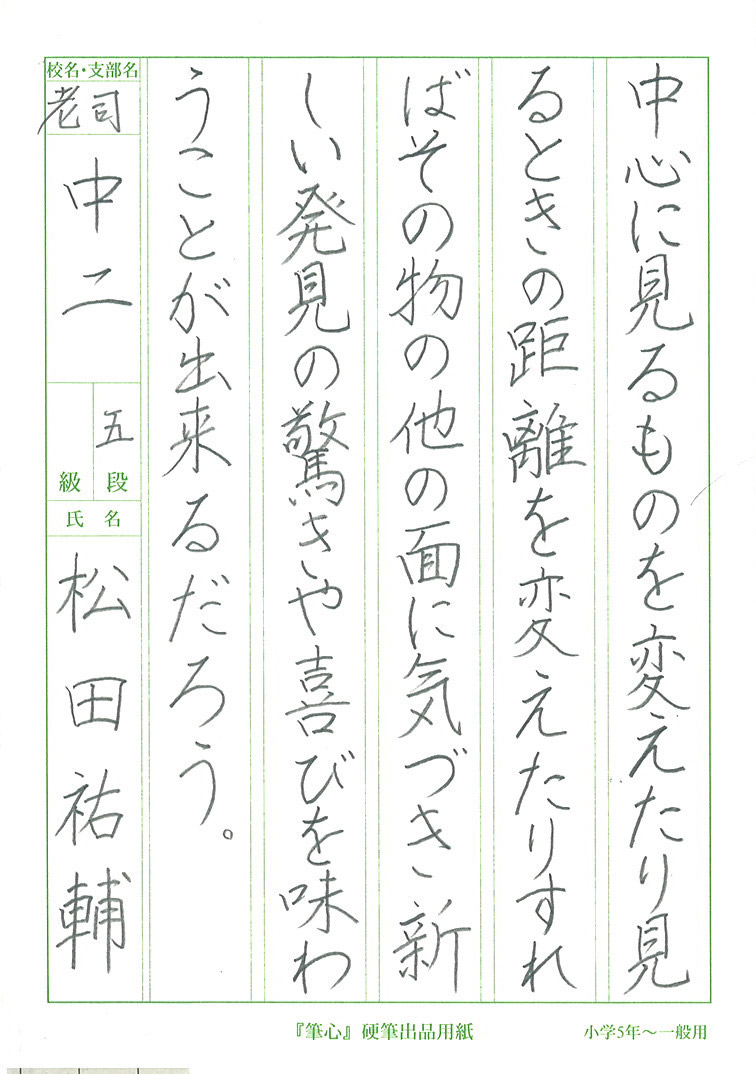 中心に見るものを変えたり見
るときの距離を変えたりすれ
ばその物の他の面に気づき新
しい発見の驚きや喜びを味わ
うことが出来るだろう。
校名・支部名
老司
中二
五
級 段
氏 名
松田祐輔
『筆心』硬筆出品用紙
小学5年〜一般用